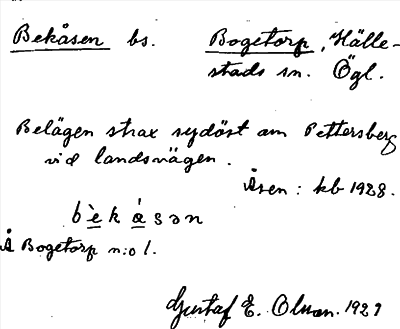 Bekåsen bs. Bogetorp, Hälle-
stads sn. Ögl.
Belägen strax sydöst om Pettersberg
vid landsvägen.
Åsen: kb 1928.
bèkåsən
Å Bogetorp n:o 1.
Gustaf E. Olsson. 1929